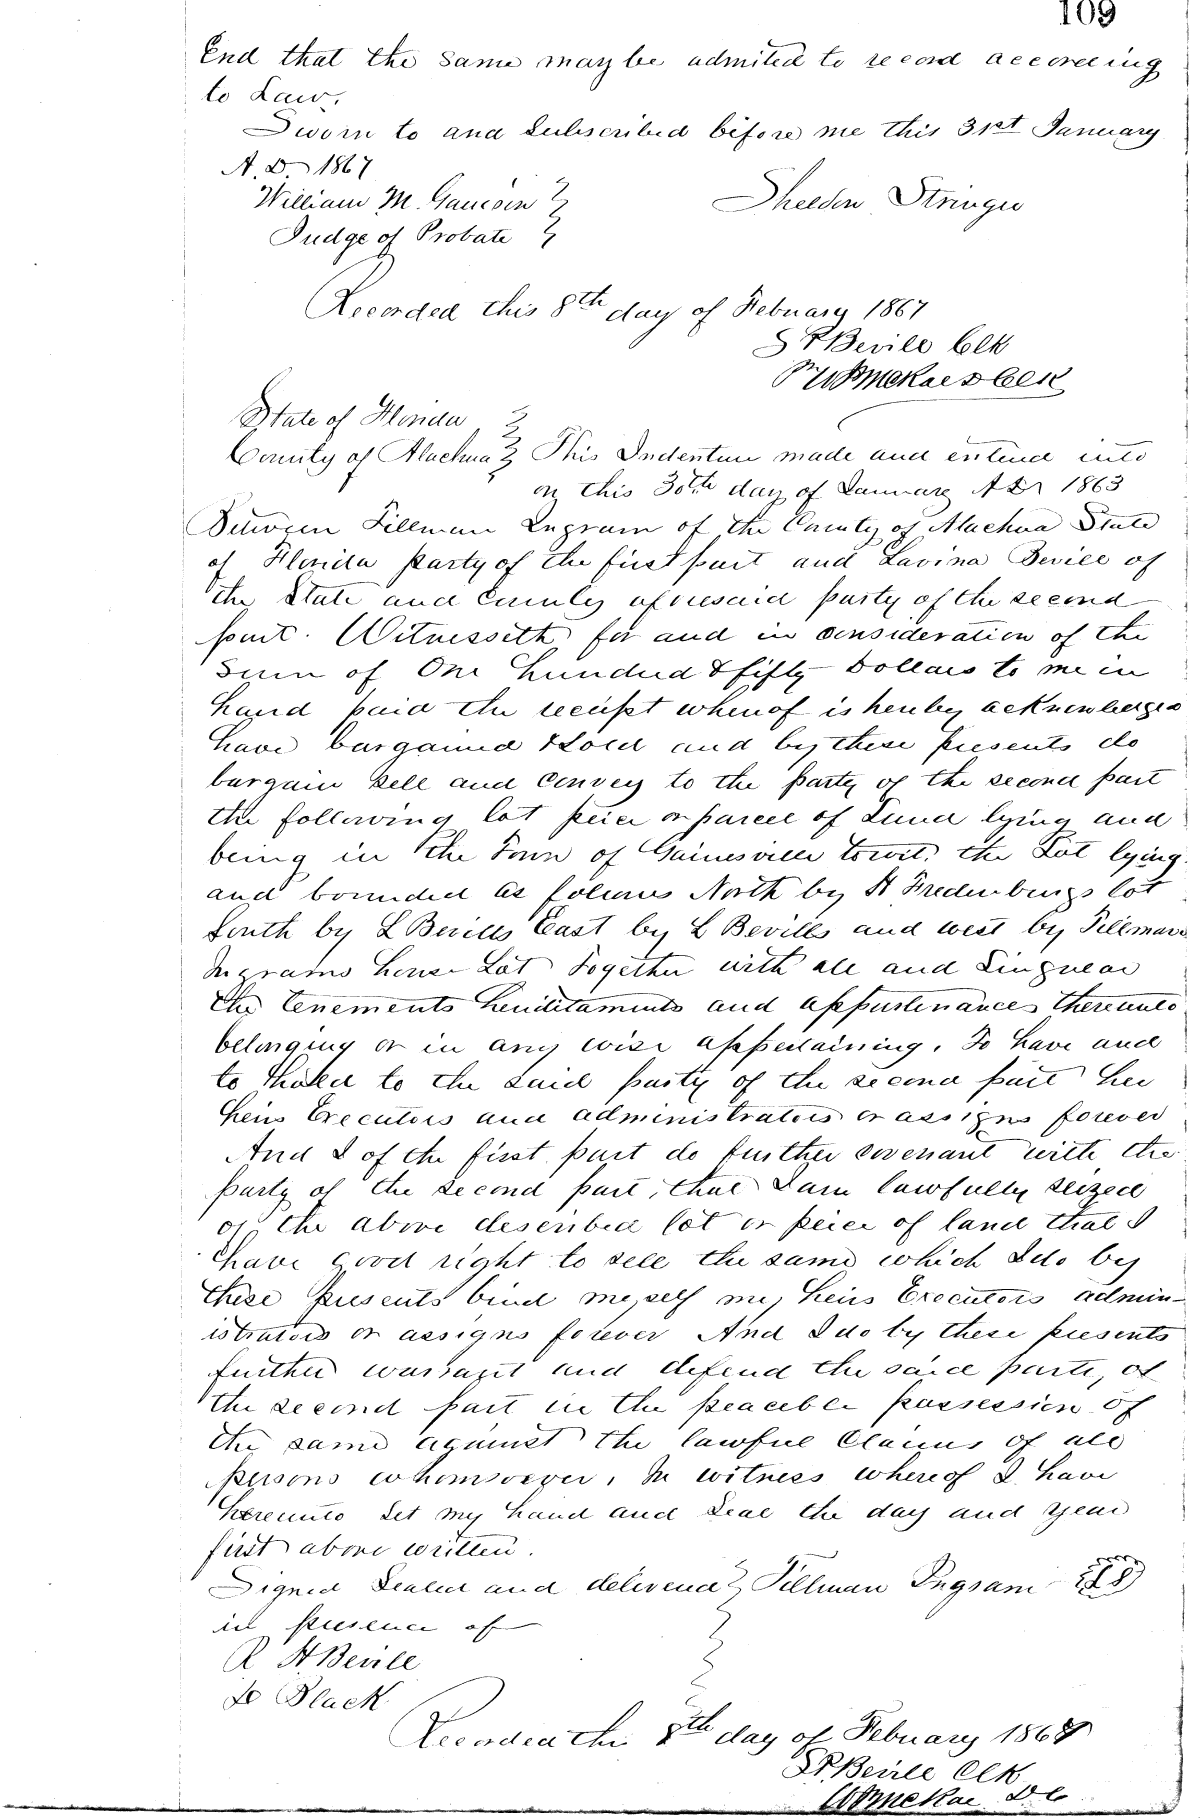 109
End that the same may be admited to record according
to Law.
Sworn to and Subscribed before me this 31st January
A. D. 1867
William M. Sheldon Stringer
Judge of Probate
Recorded this 8th day of Febuary 1867
S P Bevill Clk
State of Florida
County of Alachua This Indenture made and entered into
on this 30th day of January A D 1863
Between Tillman Ingram of the County of Alachua State
of Florida party of the first part and Lavina Bevill of
the State and County aforesaid party of the second
part. Witnesseth for and in consideration of the
Sum of One hundred & fifty Dollars to me in
hand paid the receipt whereof is hereby acknowledged
have bargained & sold and by these presents do
bargain sell and convey to the party of the second part
the following lot peice or parcel of Land lying and
being in the Town of Gainesville towit: the Lot lying
and bounded as follows North by Fredenburgs lot
South by L Bevills East by L Bevills and west by Tillman
Ingrams house Lot Together with all and Singular
the tenements hereditaments and appurtenances thereunto
belonging or in any wise appertaining. To have and
to hold to the said party of the second part her
heirs Executors and administrators or assigns forever
And I of the first part do further covenant with the
party of the second part, that I am lawfully seized
of the above described lot or peice of land that I
have good right to sell the same which I do by
these presents bind myself my heirs Executors admin-
istrators or assigns forever And I do by these presents
further warrant and defend the said party of
the second part in the peacible possession of
the same against the lawful Claims of all
persons whomsoever. In witness whereof I have
hereunto set my hand and seal the day and year
first above written.
Signed Sealed and delivered Tillman Ingram
in presence of
R H Bevill
Black
Recorded this 8th day of Febuary 1867
S P. Bevill Clk